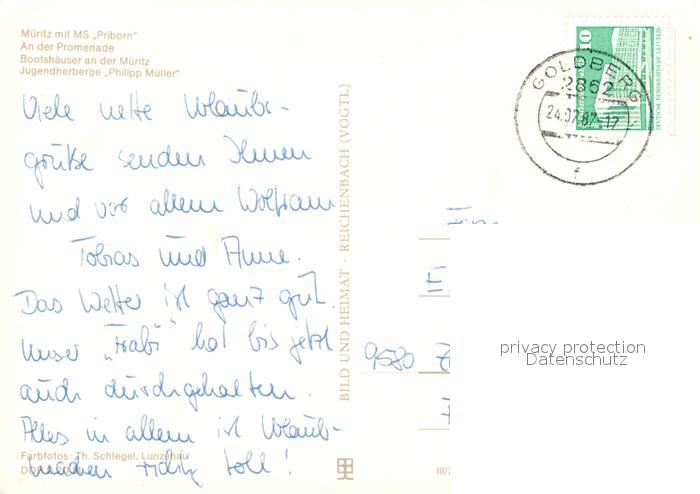 Müritz mit MS „Priborn"
An der Promenade
Bootshäuser an der Müritz
Jugendherberge „Philipp Müller"
Viele nette Urlaubs-
grüße senden Ihnen
und vor allem Wolfram
Tobias und Anne.
Das Wetter ist ganz gut.
Unser „Trabi" hat bis jetzt
auch durchgehalten.
Alles in allem ist Urlaub-
machen richtig toll!
Farbfotos: Th. Schlegel, Lunzenau
BILD UND HEIMAT · REICHENBACH (VOGTL)
10
DEUTSCHE DEMOKRATISCHE REPUBLIK
GOLDBERG
2862
24.07.87-17
f
9580
privacy protection
Datenschutz